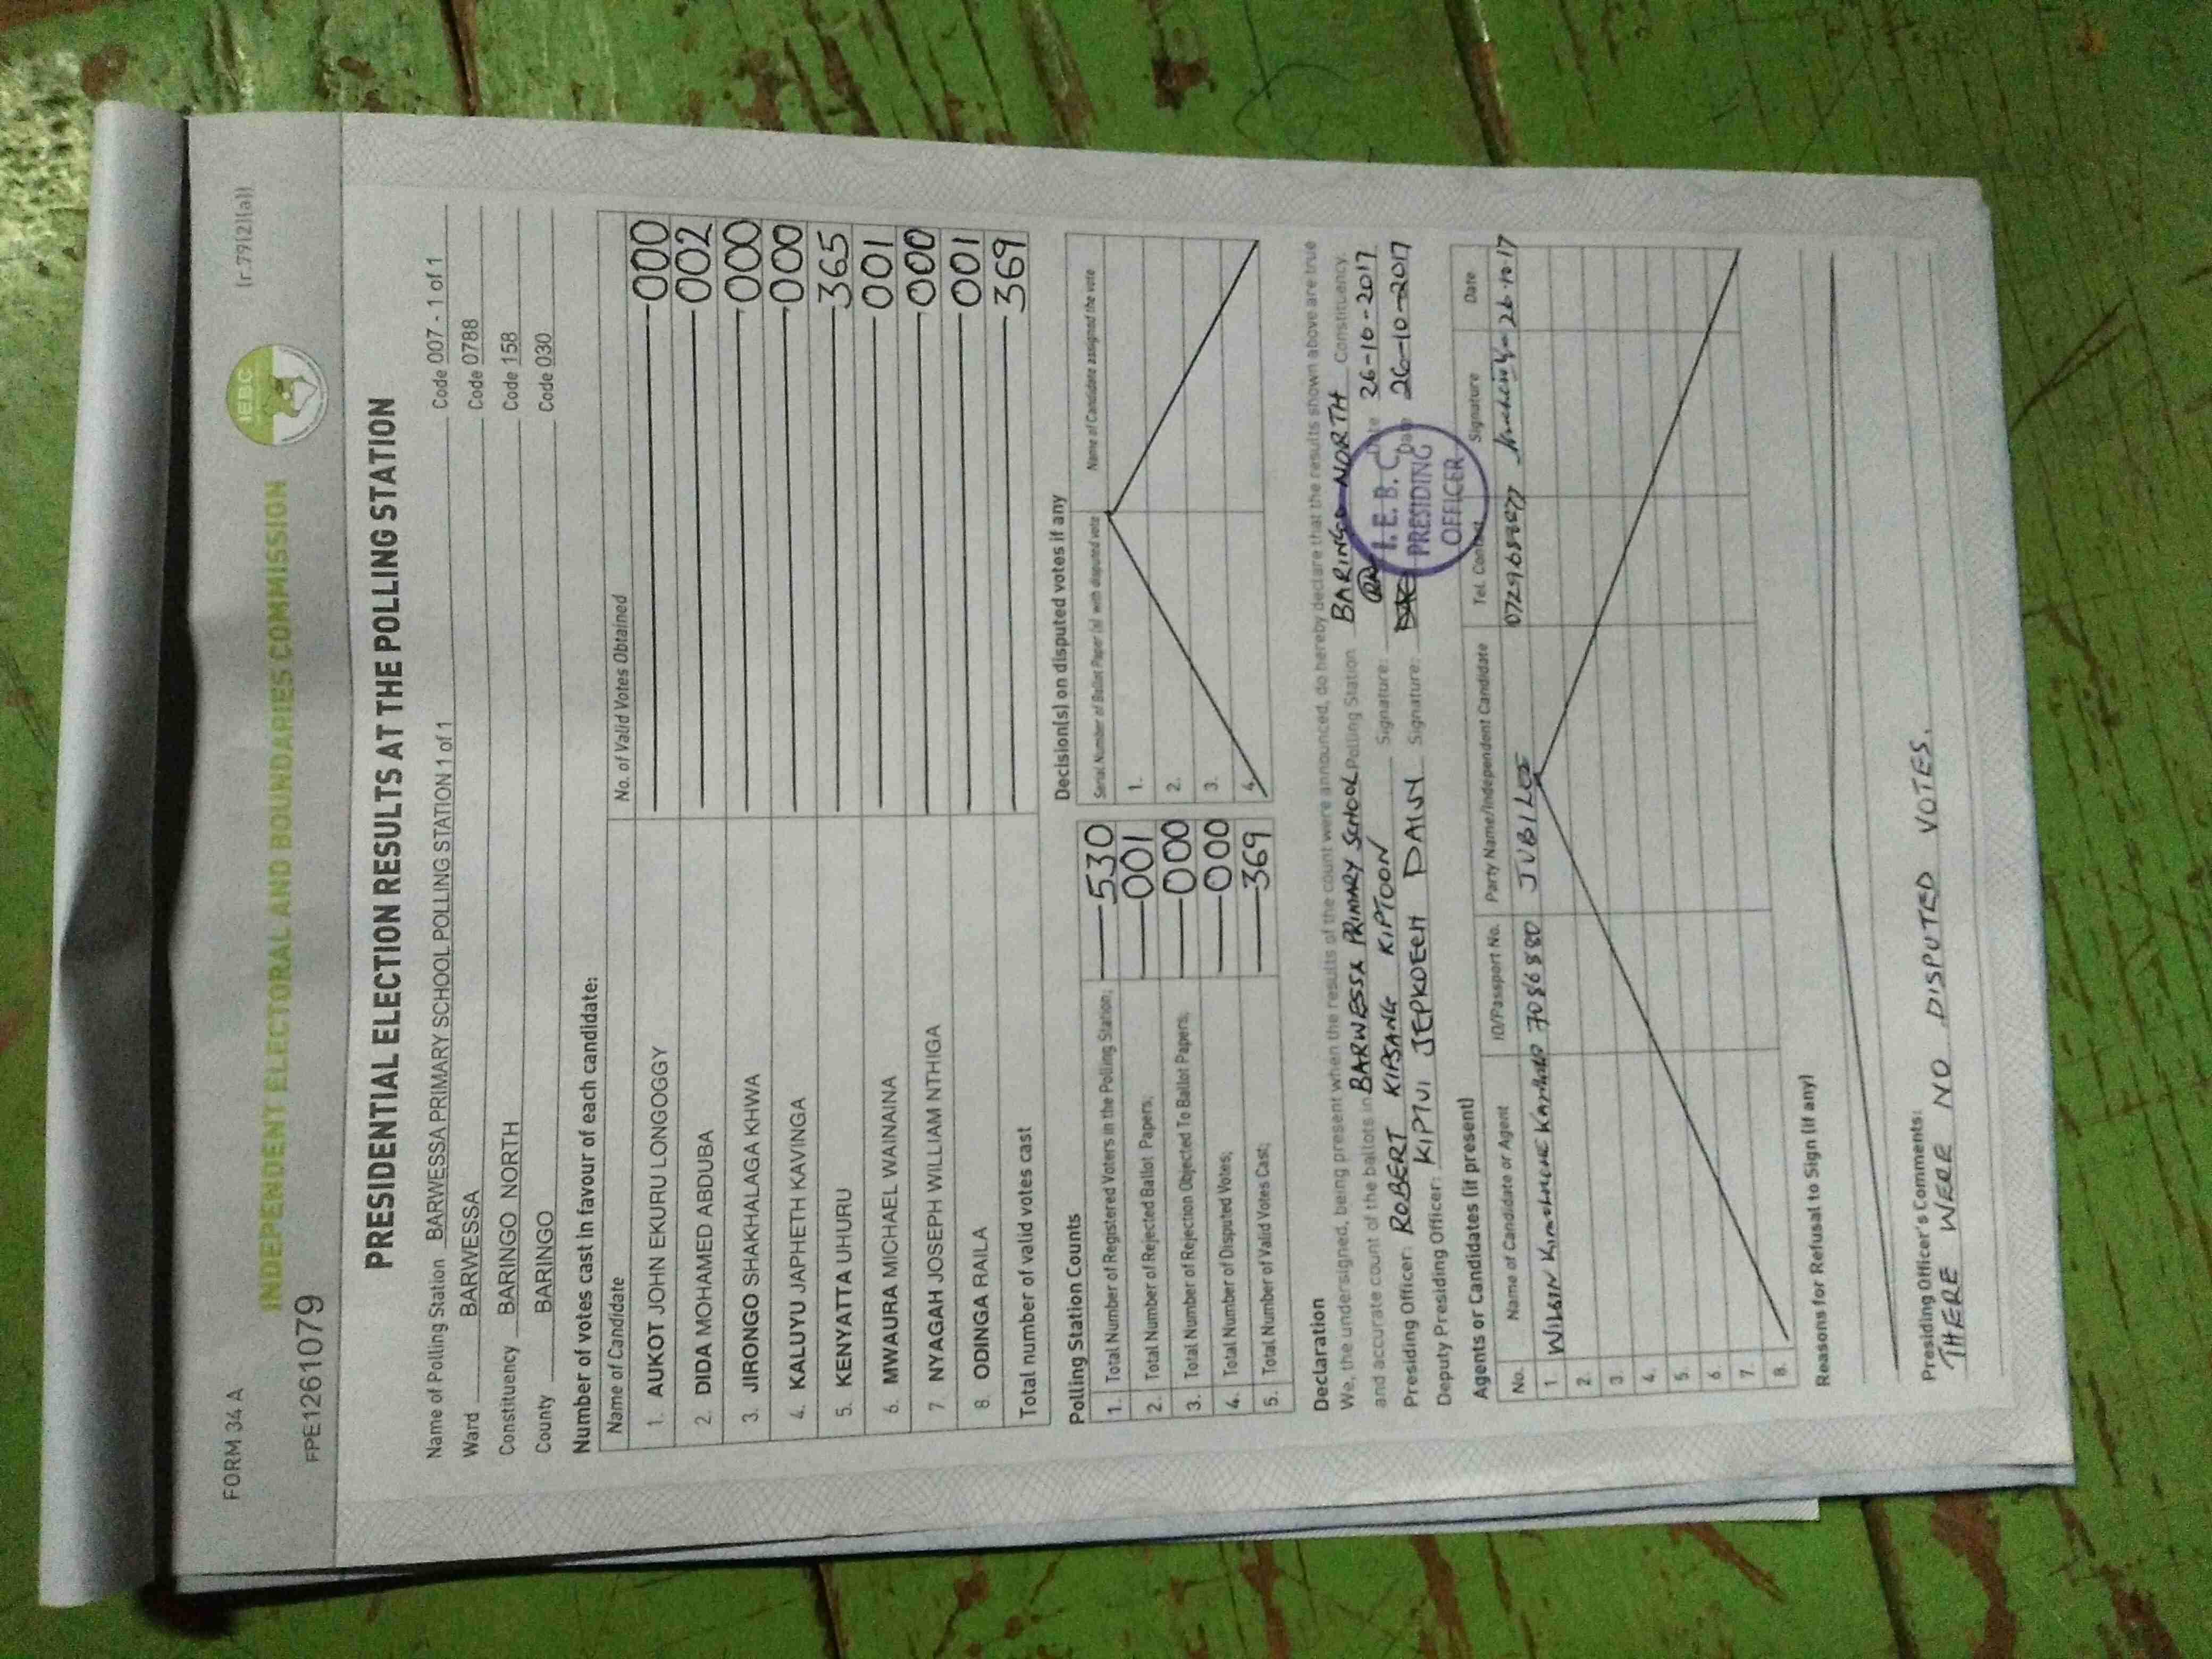 FORM 34 A
(r.79(2)(a))
I.E.B.C
INDEPENDENT ELECTORAL AND BOUNDARIES COMMISSION
FPE1261079
PRESIDENTIAL ELECTION RESULTS AT THE POLLING STATION
Name of Polling Station BARWESSA PRIMARY SCHOOL POLLING STATION 1 of 1 Code 007 - 1 of 1
Ward BARWESSA Code 0788
Constituency BARINGO NORTH Code 158
County BARINGO Code 030
Number of votes cast in favour of each candidate:
Name of Candidate No. of Valid Votes Obtained
1. AUKOT JOHN EKURU LONGOGGY 000
2. DIDA MOHAMED ABDUBA 002
3. JIRONGO SHAKHALAGA KHWA 000
4. KALUYU JAPHETH KAVINGA 000
5. KENYATTA UHURU 365
6. MWAURA MICHAEL WAINAINA 001
7 NYAGAH JOSEPH WILLIAM NTHIGA 000
8. ODINGA RAILA 001
Total number of valid votes cast 369
Polling Station Counts
1. Total Number of Registered Voters in the Polling Station; 530
2. Total Number of Rejected Ballot Papers; 001
3. Total Number of Rejection Objected To Ballot Papers; 000
4. Total Number of Disputed Votes; 000
5. Total Number of Valid Votes Cast; 369
Decision(s) on disputed votes if any
Serial Number of Ballot Paper (s) with disputed vote Name of Candidate assigned the vote
1.
2.
3.
4.
Declaration
We, the undersigned, being present when the results of the count were announced, do hereby declare that the results shown above are true
and accurate count of the ballots in BARWESSA PRIMARY SCHOOL Polling Station BARINGO NORTH Constituency.
Presiding Officer: ROBERT KIPSANG KIPTOON Signature: Date 26-10-2017
Deputy Presiding Officer: KIPTUI JEPKOECH DAISY Signature: Date 26-10-2017
I. E. B. C
PRESIDING
OFFICER
Agents or Candidates (if present)
No. Name of Candidate or Agent ID/Passport No. Party Name/Independent Candidate Tel. Contact Signature Date
1. JUBILEE 26-10-17
2.
3.
4.
5.
6.
7.
8.
Reasons for Refusal to Sign (if any)
Presiding Officer's Comments:
THERE WERE NO DISPUTED VOTES.